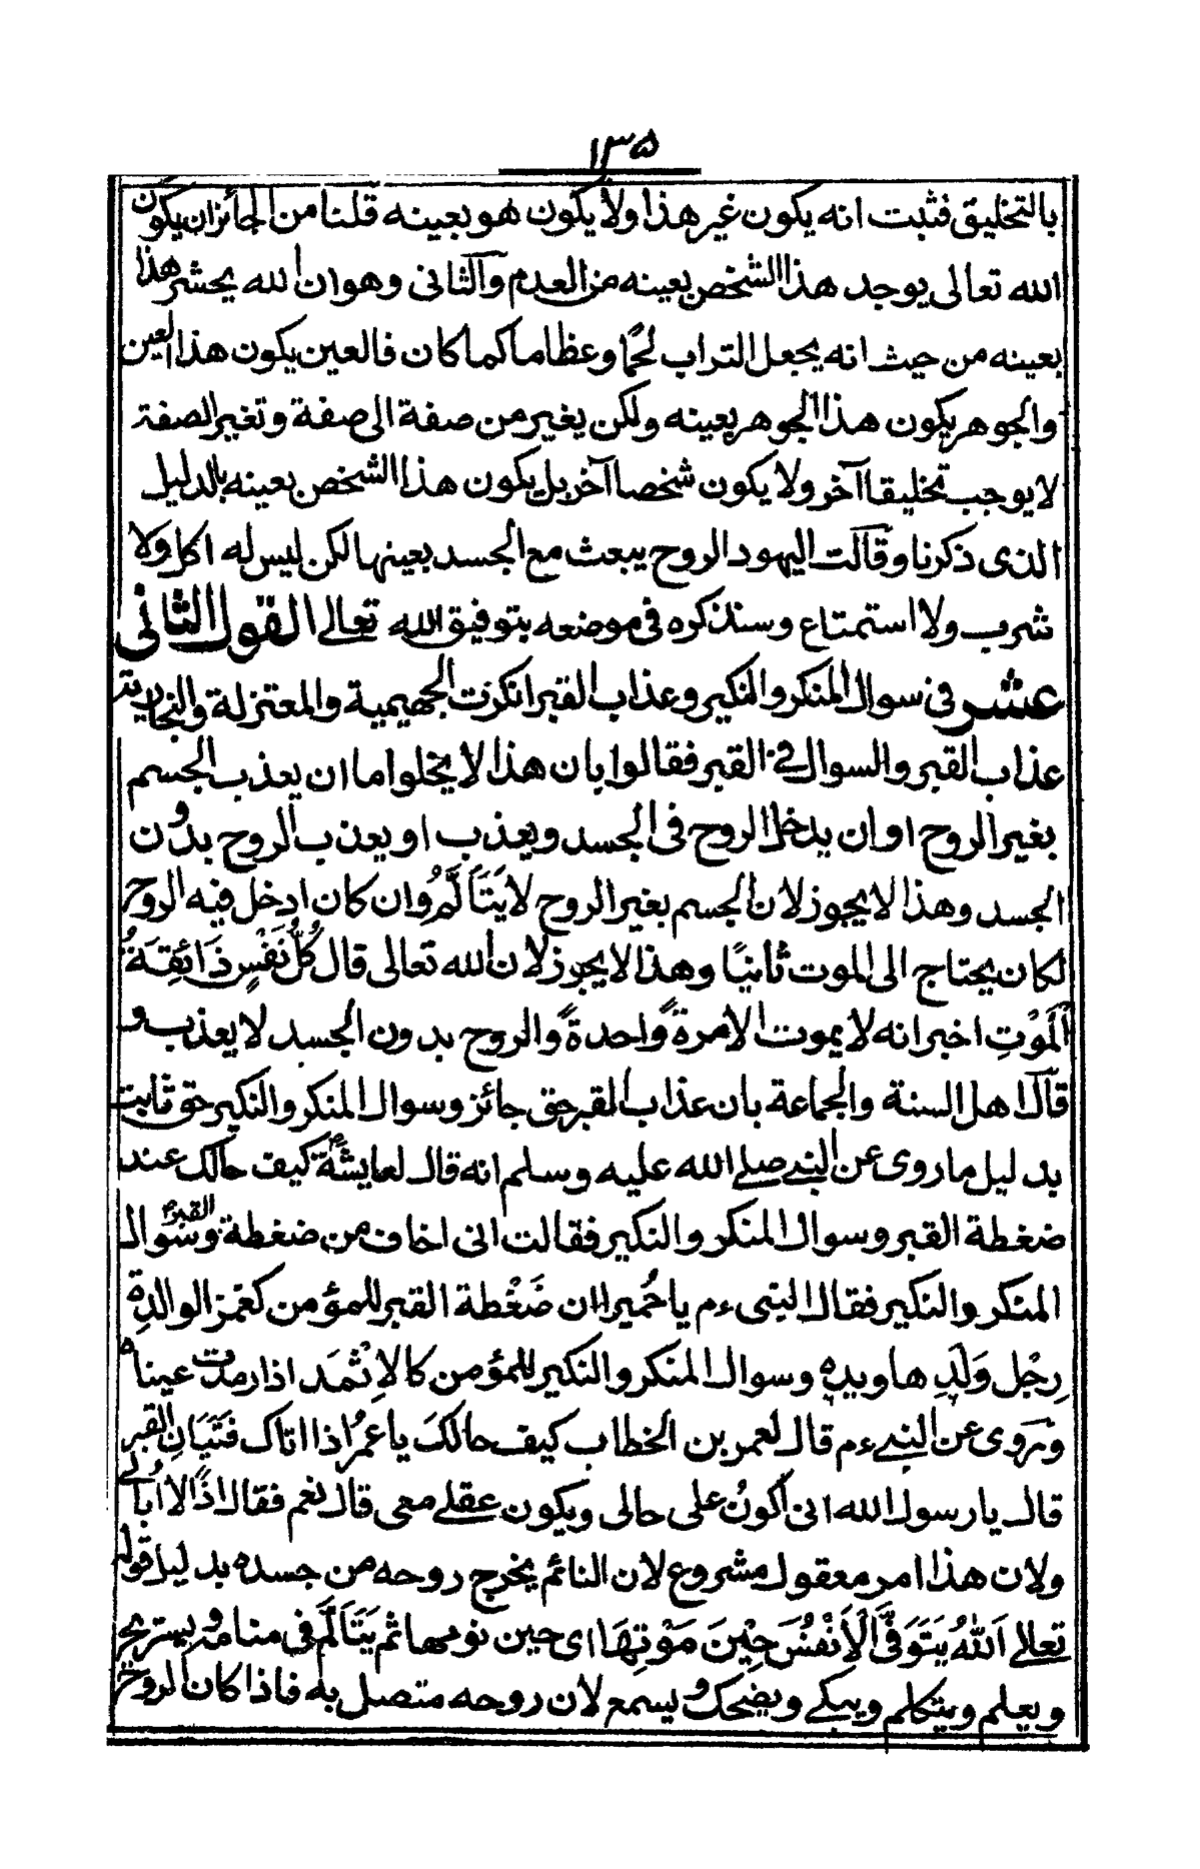 ١٣٥
بالتخليق فثبت انه يكون غير هذا ولا يكون هو بعينه قلنا من الجائزان يكون
الله تعالى يوجد هذا الشخص بعينه من العدم والثانى وهو ان الله يحشر هذا
بعينه من حيث انه يجعل التراب لحمًا وعظاما كما كان فالعين يكون هذا العين
والجوهر يكون هذا الجوهر بعينه ولكن يغير من صفة الى صفة وتغير الصفة
لا يوجب تخليقا آخر ولا يكون شخصا آخر بل يكون هذا الشخص بعينه بالدليل
الذى ذكرنا وقالت اليهود الروح يبعث مع الجسد بعينها لكن ليس له اكل ولا
شرب ولا استمتاع وسنذكره فى موضعه بتوفيق الله تعالى القول الثانى
عشر فى سوال المنكر والنكير وعذاب القبر انكرت الجهيمية والمعتزلة والنجارية
عذاب القبر والسوال فى القبر فقالوا بان هذا لا يخلوا ما ان يعذب الجسم
بغير الروح او ان يدخل الروح فى الجسد ويعذب او يعذب الروح بدون
الجسد وهذا لا يجوز لان الجسم بغير الروح لا يَتَأَلَّمُ وان كان ادخل فيه الروح
لكان يحتاج الى الموت ثانيًا وهذا لا يجوز لان الله تعالى قال كُلُّ نَفْسٍ ذَائِقَةُ
الْمَوْتِ اخبر انه لا يموت الا مرةً واحدةً والروح بدون الجسد لا يعذب و
قال اهل السنة والجماعة بان عذاب القبر حق جائز وسوال المنكر والنكير حق ثابت
بدليل ما روى عن النبى صلى الله عليه وسلم انه قال لعايشةؓ كيف حالك عند
ضغطة القبر وسوال المنكر والنكير فقالت انى اخاف من ضغطة القبر وسوال
المنكر والنكير فقال النبى ءم يا حُميرا ان ضَغْطة القبر للمؤمن كغمز الوالدةِ
رِجْل وَلَدِها وبيده وسوال المنكر والنكير للمؤمن كالاِثْمَد اذا رمدت عيناه
وتروى عن النبى ءم قال لعمر بن الخطاب كيف حالكَ يا عمرُ اذا اتاك فَتَيَانِ القبر
قال يا رسول الله انى أكونُ على حالى ويكون عقلى معى قال نعم فقال اذًا لا اُبالى
ولان هذا امر معقول مشروع لان النائم يخرج روحه من جسده بدليل قوله
تعالى اَللهُ يَتَوَفَّى الْاَنْفُسَ حِيْنَ مَوْتِهَا اى حين نومها ثم يَتَأَلَّم فى منامه ويستريح
ويعلم ويتكلم ويبكى ويضحك ويسمع لان روحه متصل به فاذا كان الروح